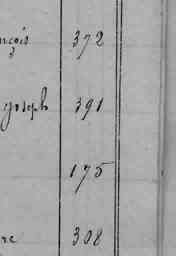 nçois 372
Joseph 391
175
re 308